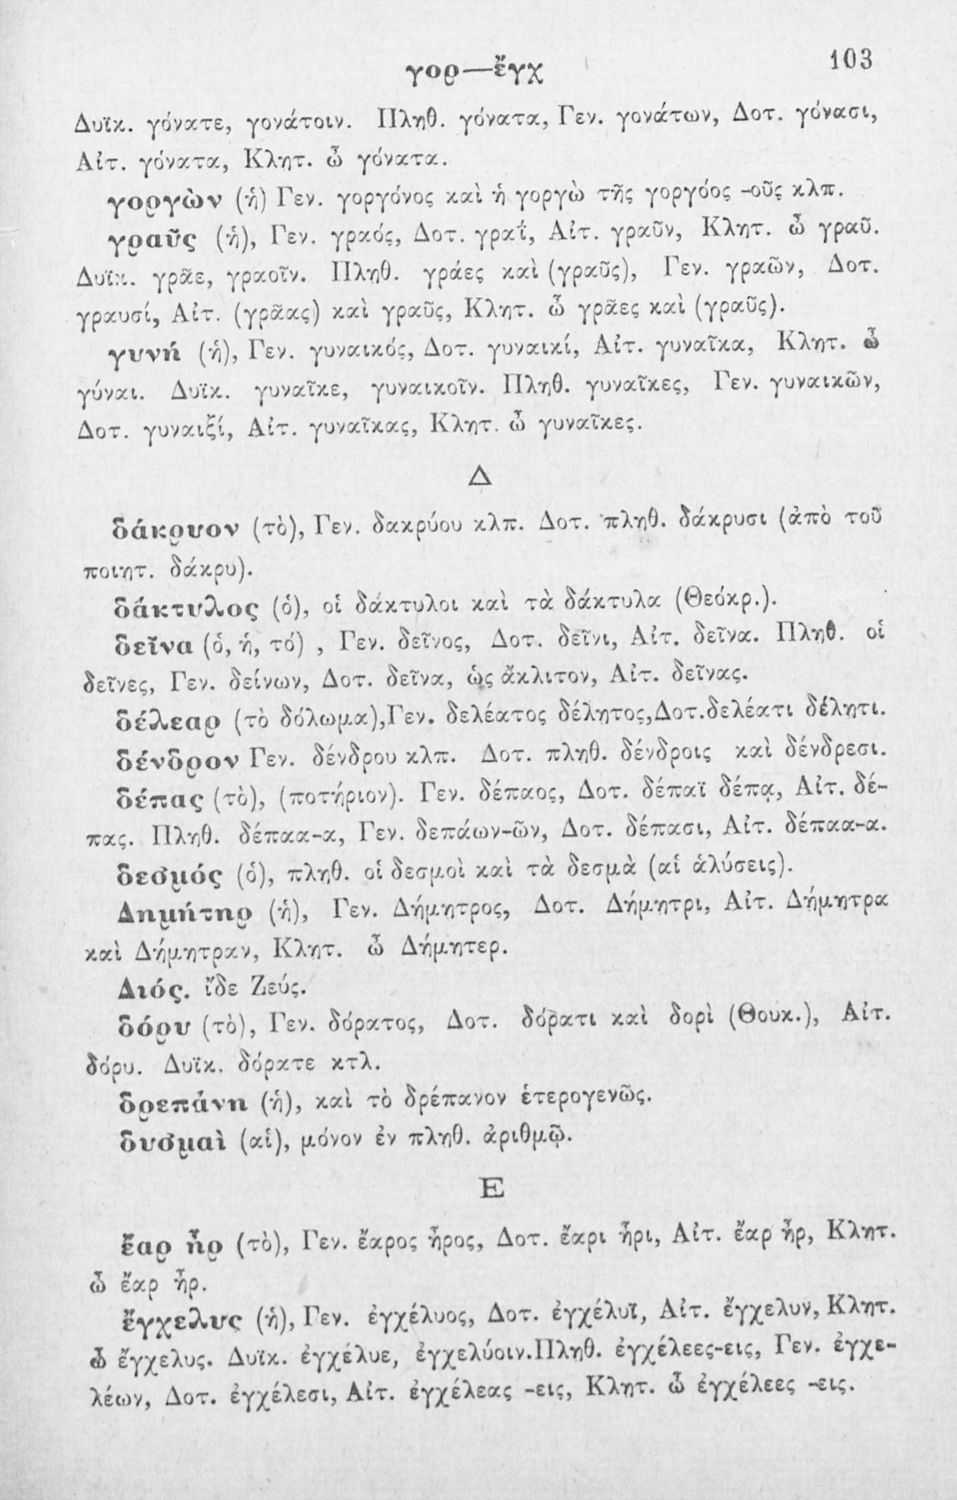 γορ—ἔγχ 103
Δυϊκ. γόνατε, γονάτοιν. Πληθ. γόνατα, Γεν. γονάτων, Δοτ. γόνασι,
Αἰτ. γόνατα, Κλητ. ὦ γόνατα.
γοργὼν (ἡ) Γεν. γοργόνος καὶ ἡ γοργὼ τῆς γοργόος -οῦς κλπ.
γραῦς (ἡ), Γεν. γραός, Δοτ. γραΐ, Αἰτ. γραῦν, Κλητ. ὦ γραῦ.
Δυϊκ. γρᾶε, γραοῖν. Πληθ. γράες καὶ (γραῦς), Γεν. γραῶν, Δοτ.
γραυσί, Αἰτ. (γρᾶας) καὶ γραῦς, Κλητ. ὦ γρᾶες καὶ (γραῦς).
γυνή (ἡ), Γεν. γυναικός, Δοτ. γυναικί, Αἰτ. γυναῖκα, Κλητ. ὦ
γύναι. Δυϊκ. γυναῖκε, γυναικοῖν. Πληθ. γυναῖκες, Γεν. γυναικῶν,
Δοτ. γυναιξί, Αἰτ. γυναῖκας, Κλητ. ὦ γυναῖκες.
Δ
δάκρυον (τὸ), Γεν. δακρύου κλπ. Δοτ. πληθ. δάκρυσι (ἀπὸ τοῦ
ποιητ. δάκρυ).
δάκτυλος (ὁ), οἱ δάκτυλοι καὶ τὰ δάκτυλα (Θεόκρ.).
δεῖνα (ὁ, ἡ, τό) , Γεν. δεῖνος, Δοτ. δεῖνι, Αἰτ. δεῖνα. Πληθ. οἱ
δεῖνες, Γεν. δείνων, Δοτ. δεῖνα, ὡς ἄκλιτον, Αἰτ. δεῖνας.
δέλεαρ (τὸ δόλωμα),Γεν. δελέατος δέλητος,Δοτ.δελέατι δέλητι.
δένδρον Γεν. δένδρου κλπ. Δοτ. πληθ. δένδροις καὶ δένδρεσι.
δέπας (τὸ), (ποτήριον). Γεν. δέπαος, Δοτ. δέπαϊ δέπᾳ, Αἰτ. δέ-
πας. Πληθ. δέπαα-α, Γεν. δεπάων-ῶν, Δοτ. δέπασι, Αἰτ. δέπαα-α.
δεσμός (ὁ), πληθ. οἱ δεσμοὶ καὶ τὰ δεσμὰ (αἱ ἁλύσεις).
Δημήτηρ (ἡ), Γεν. Δήμητρος, Δοτ. Δήμητρι, Αἰτ. Δήμητρα
καὶ Δήμητραν, Κλητ. ὦ Δήμητερ.
Διός. ἴδε Ζεύς.
δόρυ (τὸ), Γεν. δόρατος, Δοτ. δόρατι καὶ δορὶ (Θουκ.), Αἰτ.
δόρυ. Δυϊκ. δόρατε κτλ.
δρεπάνη (ἡ), καὶ τὸ δρέπανον ἑτερογενῶς.
δυσμαὶ (αἱ), μόνον ἐν πληθ. ἀριθμῷ.
Ε
ἔαρ ἦρ (τὸ), Γεν. ἔαρος ἦρος, Δοτ. ἔαρι ἦρι, Αἰτ. ἔαρ ἦρ, Κλητ.
ὦ ἔαρ ἦρ.
ἔγχελυς (ἡ), Γεν. ἐγχέλυος, Δοτ. ἐγχέλυϊ, Αἰτ. ἔγχελυν, Κλητ.
ὦ ἔγχελυς. Δυϊκ. ἐγχέλυε, ἐγχελύοιν.Πληθ. ἐγχέλεες-εις, Γεν. ἐγχε-
λέων, Δοτ. ἐγχέλεσι, Αἰτ. ἐγχέλεας -εις, Κλητ. ὦ ἐγχέλεες -εις.